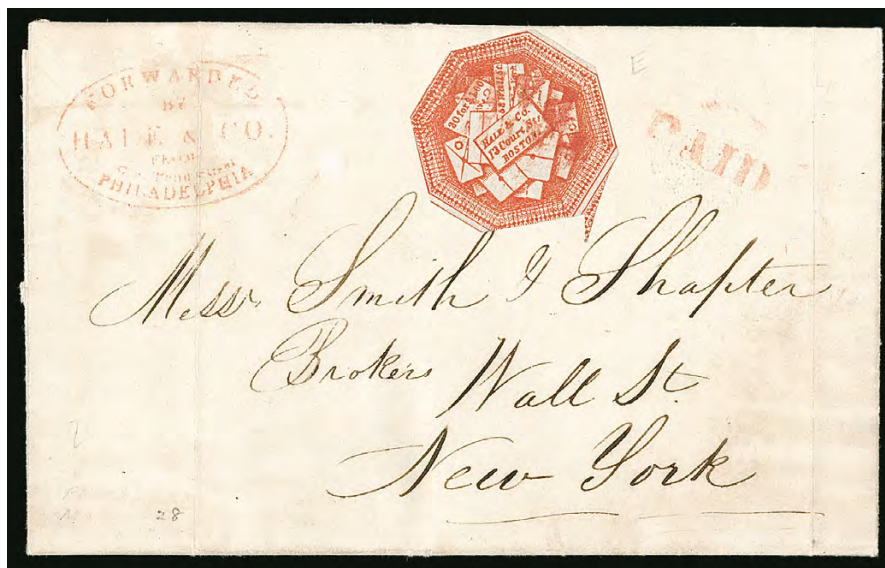 FORWARDED
BY
HALE & CO.
FROM
PHILADELPHIA
20 for $1.00
HALE & Co.
13 Court Str
BOSTON.
PAID
E
Messrs Smith & Shapter
Brokers Wall St.
New York
28